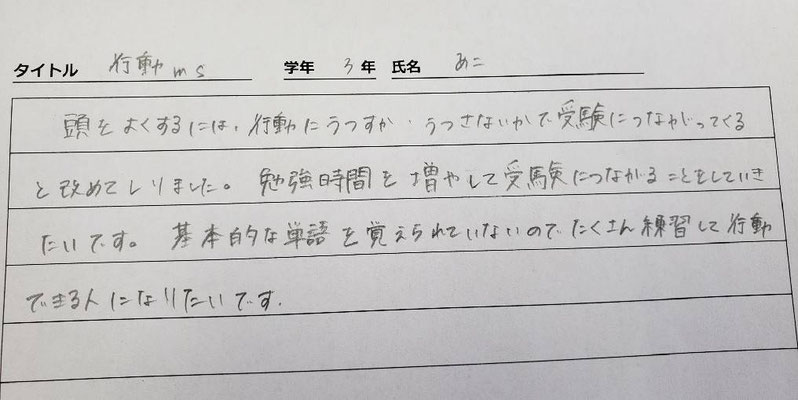 タイトル 行動ms 学年 3年 氏名 あこ
頭をよくするには、行動にうつすか、うつさないかで受験につながってくる
と改めてしりました。勉強時間を増やして受験につながることをしていき
たいです。基本的な単語を覚えられていないのでたくさん練習して行動
できる人になりたいです.